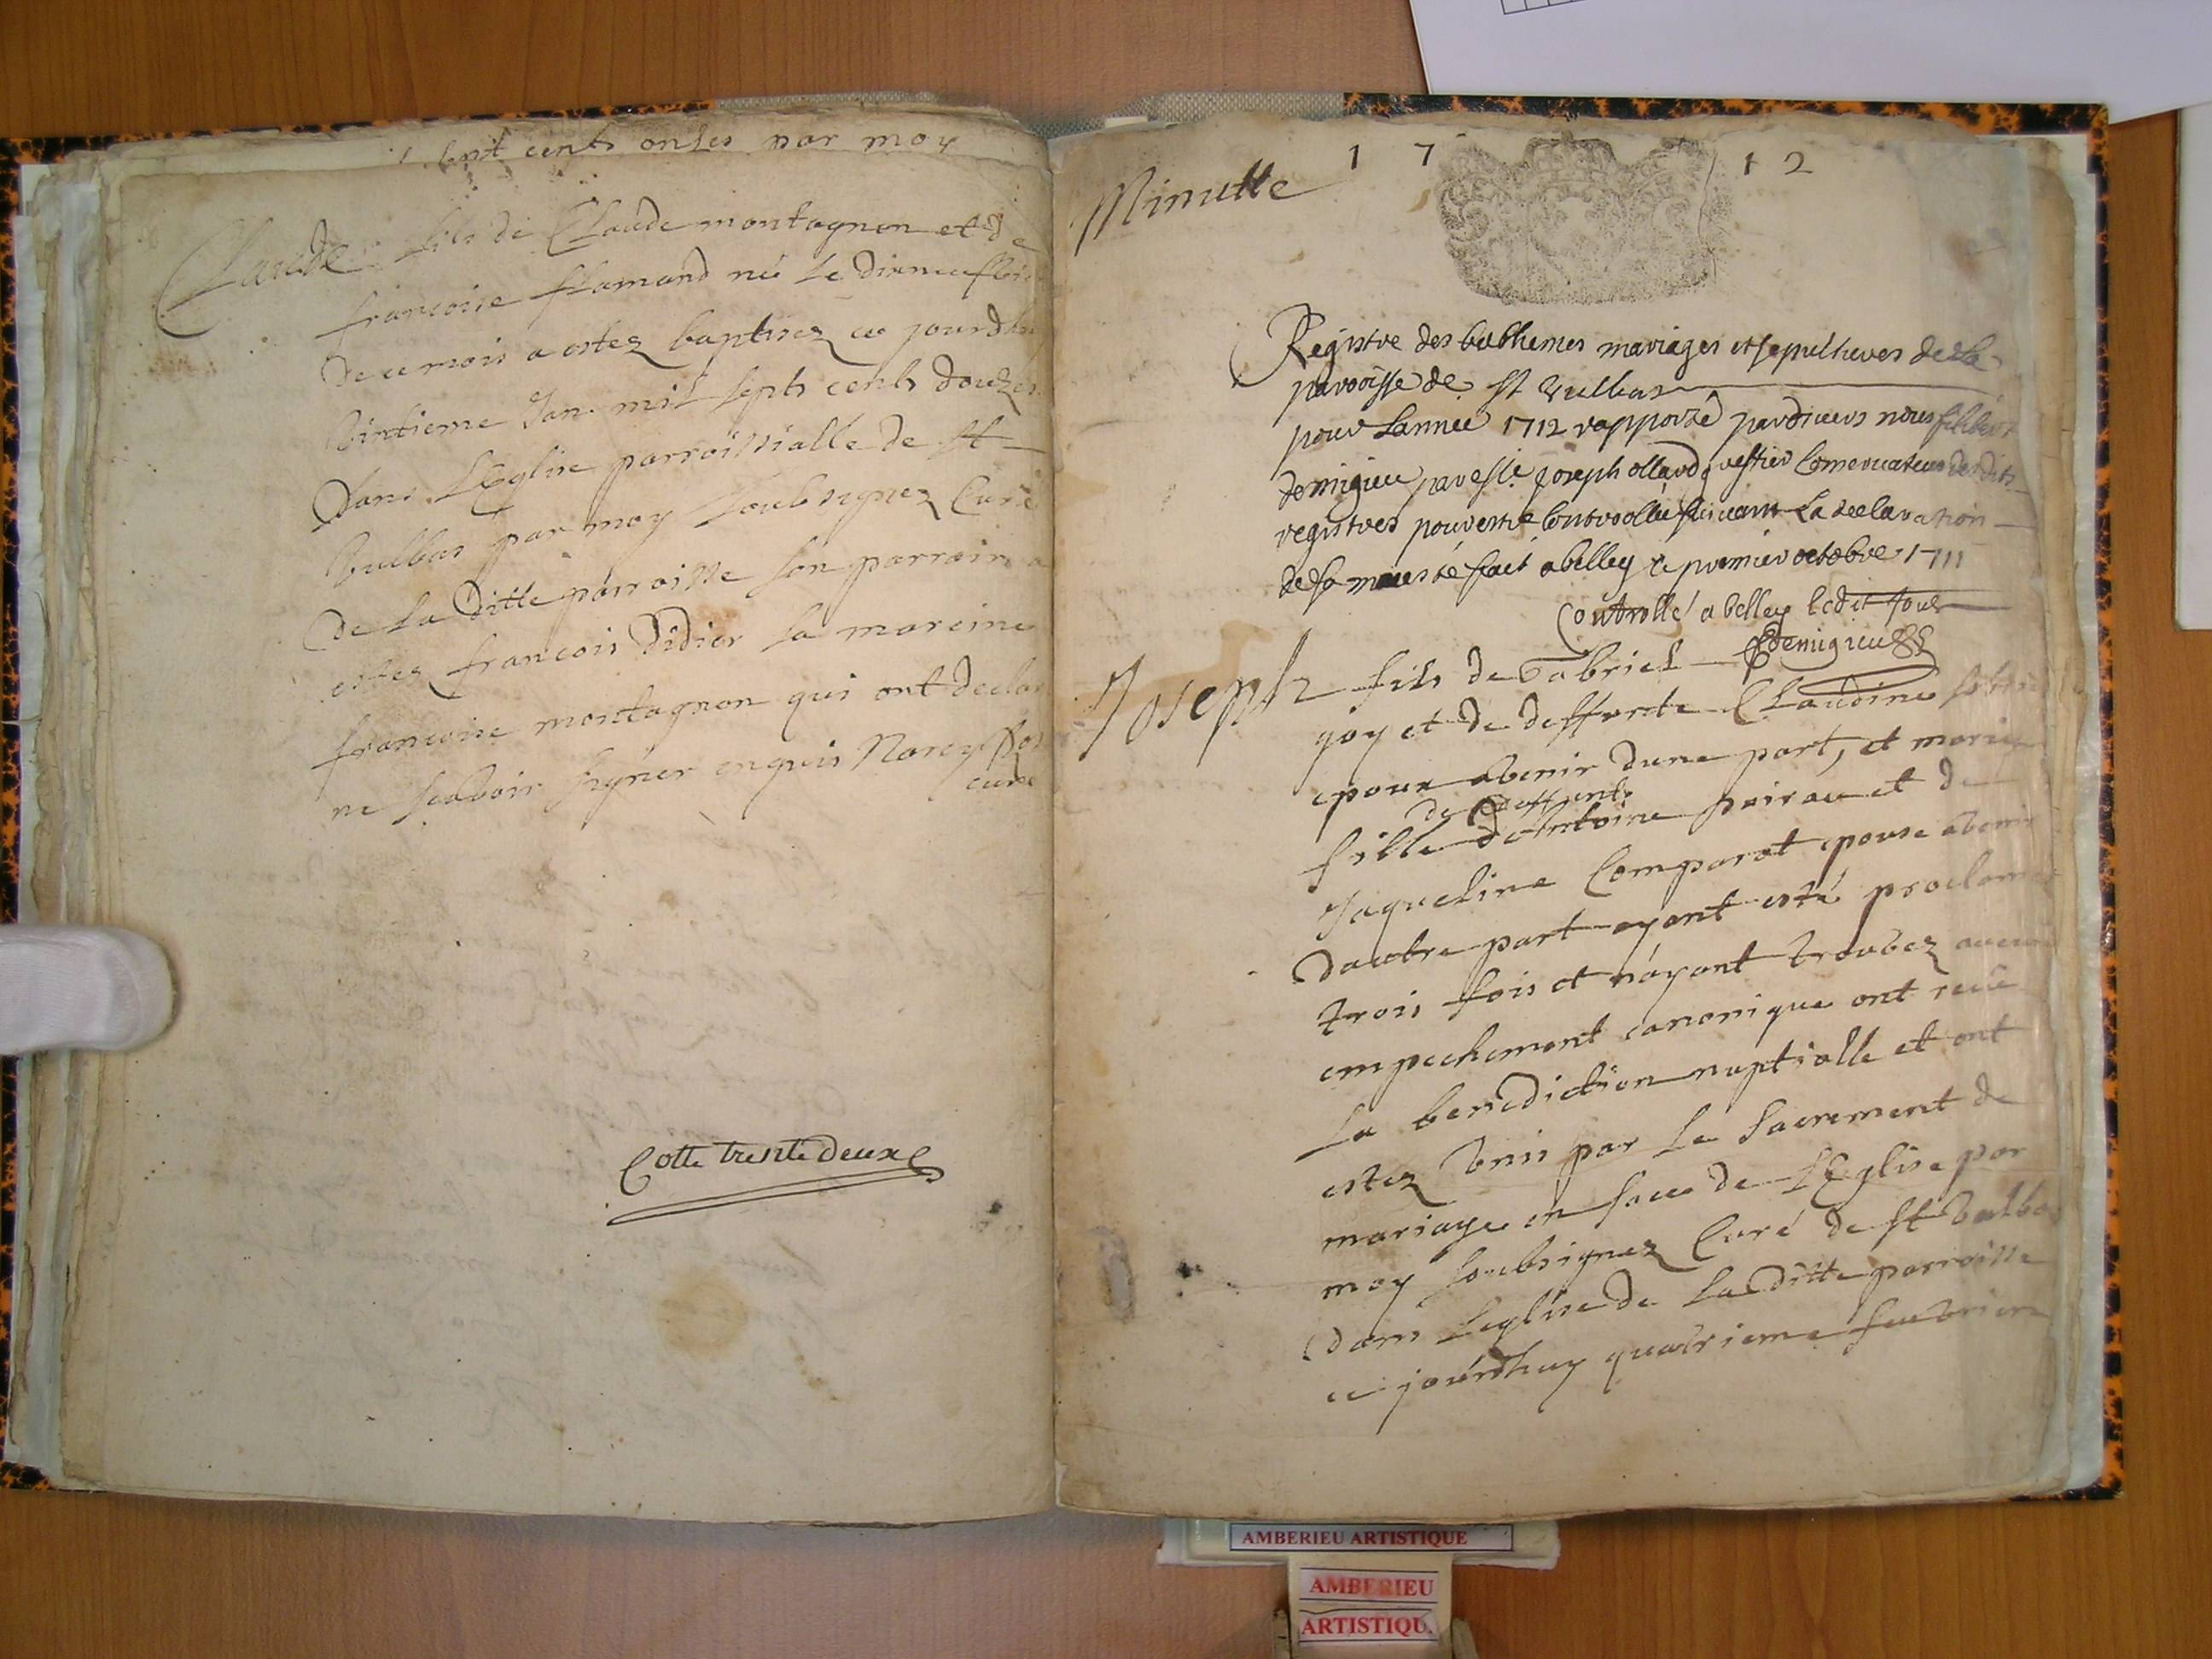 sept cents onses par moy
Claude fils de Claude montagnon et de
francoise flamand né le dixneufvie
de ce mois a estez baptisez ce jourdhu
vintieme Jan. mil septs cents douzes
dans LEglise parroissialle de St
Vulbas par moy soubsignez Curé
de La ditte parroisse son parrain a
estez francois Didier sa mareine
francoise montagnon qui ont declar
ne scavoir signer enquis
curé
Cotte trente deux
Minutte
1 7 1 2
Registre des babthemes mariages et sepultures de la
parroisse de St Vulbas
pour Lannee 1712 rapporté pardivers nous filibert
demigieu paressie Joseph ollard greffier Conservateur desdits
registres pour estre Controollee suivant La declaration
de sa maiesté fait a belley ce premier octobre 1711
Controllé a belley ledit jour
demigieu
Joseph fils de Gabriel
joy et de deffunte Claudine
epoux avenir dune part, et marie
de deffunt
fille de Antoine poirau et de
Jaqueline Comparat epouse avenir
dautre part ayant esté proclamez
trois fois et nayant trouvez aucun
empechement canonique ont receu
La benediction nuptialle et ont
estez unis par Le Sacrement de
mariage en face de LEglise par
moy soubsignez Curé de St Vulbas
dans Leglise de La ditte parroisse
ce jourdhuy quatrieme
AMBERIEU ARTISTIQUE
AMBERIEU
ARTISTIQU